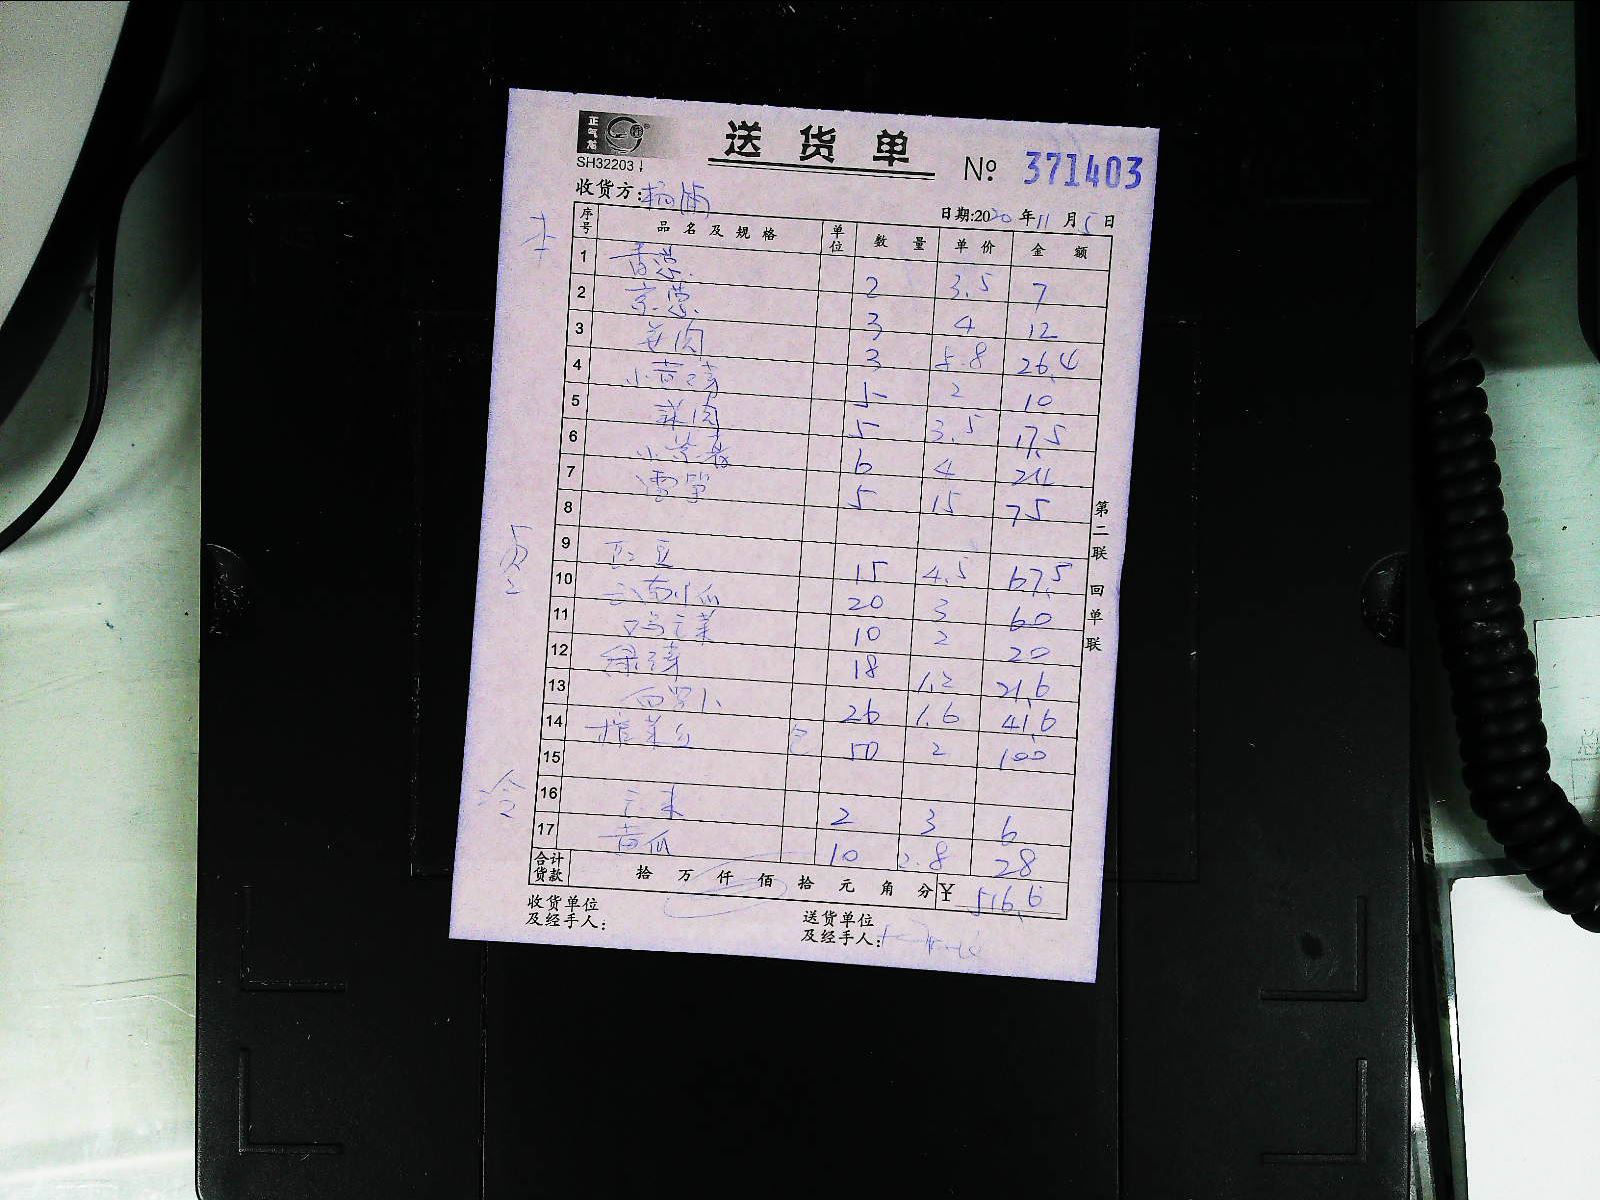 正气龙
送货单
№ 371403
SH32203
收货方:杨浦
日期:2020年11月5日
序号 品名及规格 单位 数量 单价 金额
1 香葱 2 3.5 7
2 京葱 3 4 12
3 3 8.8 26.4
4 小黄 5 2 10
5 菜肉 5 3.5 17.5
6 小 6 4 24
7 雪笋 5 15 75
8
9 豆 15 4.5 67.5
10 云南小瓜 20 3 60
11 菜 10 2 20
12 绿芽 18 1.2 21.6
13 白罗卜 26 1.6 41.6
14 榨菜 包 50 2 100
15
16 2 3 6
17 黄瓜 10 2.8 28
合计货款 拾 万 仟 佰 拾 元 角 分 ¥ 516.6
收货单位及经手人:
送货单位及经手人:
第二联 回单联
冷